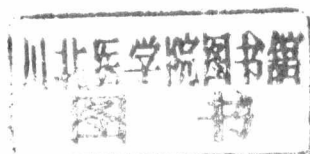 川北医学院图书馆
图 书